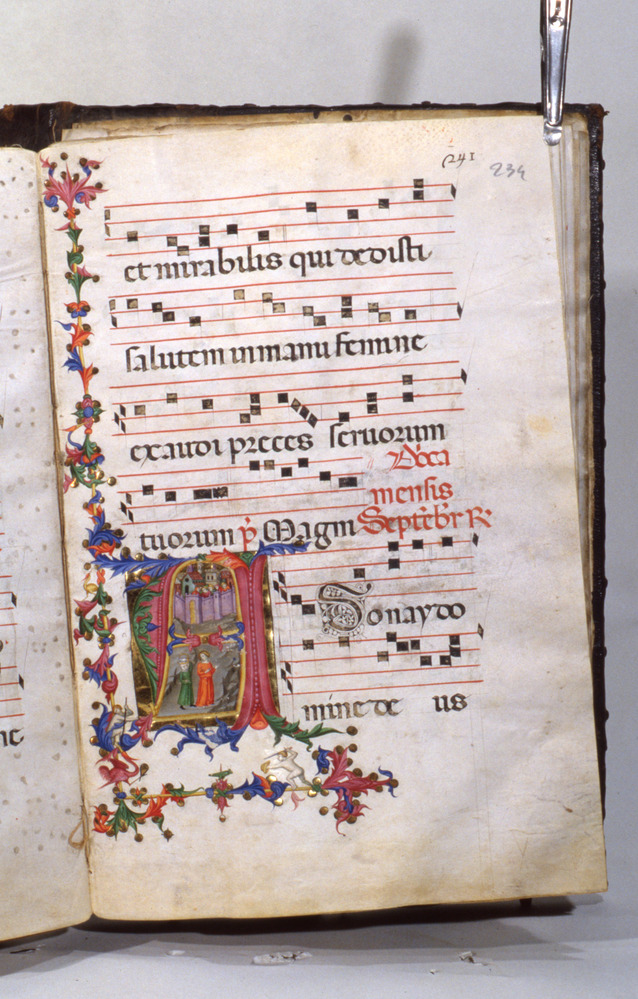 241
234
et mirabilis qui dedisti
salutem in manu femine
exaudi preces servorum
tuorum p̱ Magni Dn̄ca
mensis
Septēbr R
Adonaydo
mine de us
ne